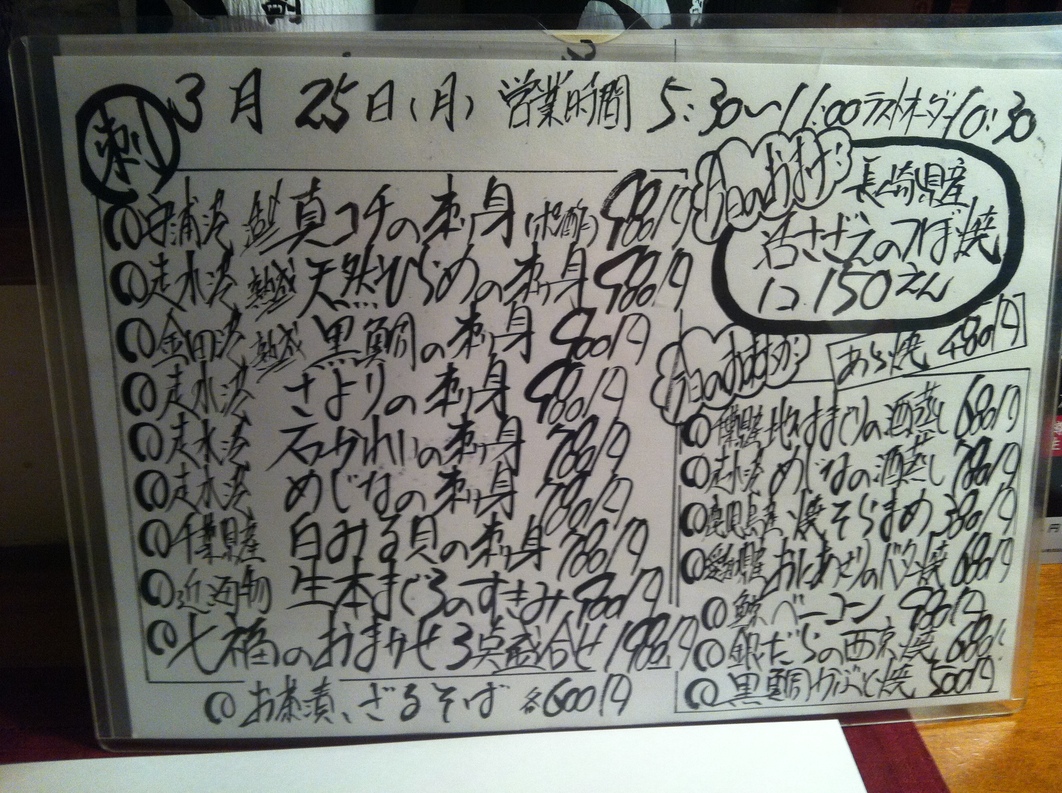 3月25日(月) 営業時間 5:30〜11:00 ラストオーダー10:30
刺
真コチの刺身(ポン酢) 980円
走水港 熟成 天然ひらめの刺身 980円
金田湾 熟成 黒鯛の刺身 900円
走水港 さよりの刺身 980円
走水港 石かれいの刺身 780円
走水港 めじなの刺身 780円
千葉県産 白みる貝の刺身 780円
近海物 生本まぐろのすきみ 980円
七福のおまかせ3点盛合せ 1980円
お茶漬、ざるそば 各600円
今日のおすすめ
長崎県産
活さざえのつぼ焼
1コ 150えん
今日のおすすめ
あら焼 480円
千葉県産 地はまぐりの酒蒸し 680円
走水港 めじなの酒蒸し 780円
鹿児島産 焼そらまめ 380円
愛知県産 おにあさりのバター焼 680円
鯨ベーコン 980円
銀だらの西京焼 680円
黒鯛かぶと焼 500円